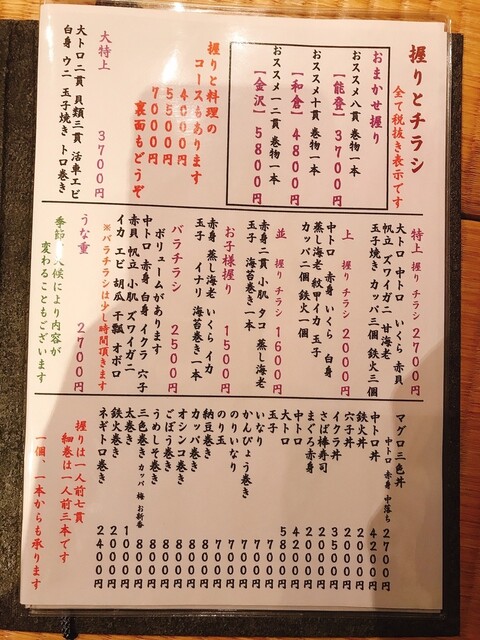 握りとチラシ
全て税抜き表示です
おまかせ握り
おススメ八貫 巻物一本
【能登】3700円
おススメ十貫 巻物一本
【和倉】4800円
おススメ一二貫 巻物一本
【金沢】5800円
握りと料理の
コースもあります
4000円
5500円
7000円
裏面もどうぞ
大特上 3700円
大トロ二貫 貝類三貫 活車エビ
白身 ウニ 玉子焼き トロ巻き
特上 握り チラシ 2700円
大トロ 中トロ いくら 赤貝
帆立 ズワイガニ 甘海老
玉子焼き カッパ三個 鉄火三個
上 握り チラシ 2000円
中トロ 赤身 いくら 白身
蒸し海老 紋甲イカ 玉子
カッパ二個 鉄火一個
並 握り チラシ 1600円
赤身二貫 小肌 タコ 蒸し海老
玉子 海苔巻き一本
お子様握り 1500円
赤身 蒸し海老 いくら イカ
玉子 イナリ 海苔巻き一本
バラチラシ 2500円
ボリュームがあります
中トロ 赤身 白身 イクラ 穴子
赤貝 帆立 小肌 ズワイガニ
イカ エビ 胡瓜 干瓢 オボロ
※バラチラシは少し時間頂きます
うな重 2700円
季節 天候により内容が
変わることもございます
マグロ三色丼 2700円
中トロ 赤身 中落ち
中トロ丼 4200円
鉄火丼 2000円
穴子丼 2000円
イクラ丼 3500円
さば棒寿司 2000円
まぐろ赤身
中トロ 4200円
大トロ 5800円
玉子 700円
いなり 700円
かんぴょう巻き 700円
のりいなり 700円
のり玉 700円
納豆巻き 800円
カッパ巻き 800円
オシンコ巻き 800円
ごぼう巻き 800円
うめしそ巻き 800円
三色巻き カッパ 梅 お新香 800円
太巻き 1000円
鉄火巻き 2000円
ネギトロ巻き 2400円
握りは一人前七貫
細巻は一人前三本です
一個、一本からも承ります